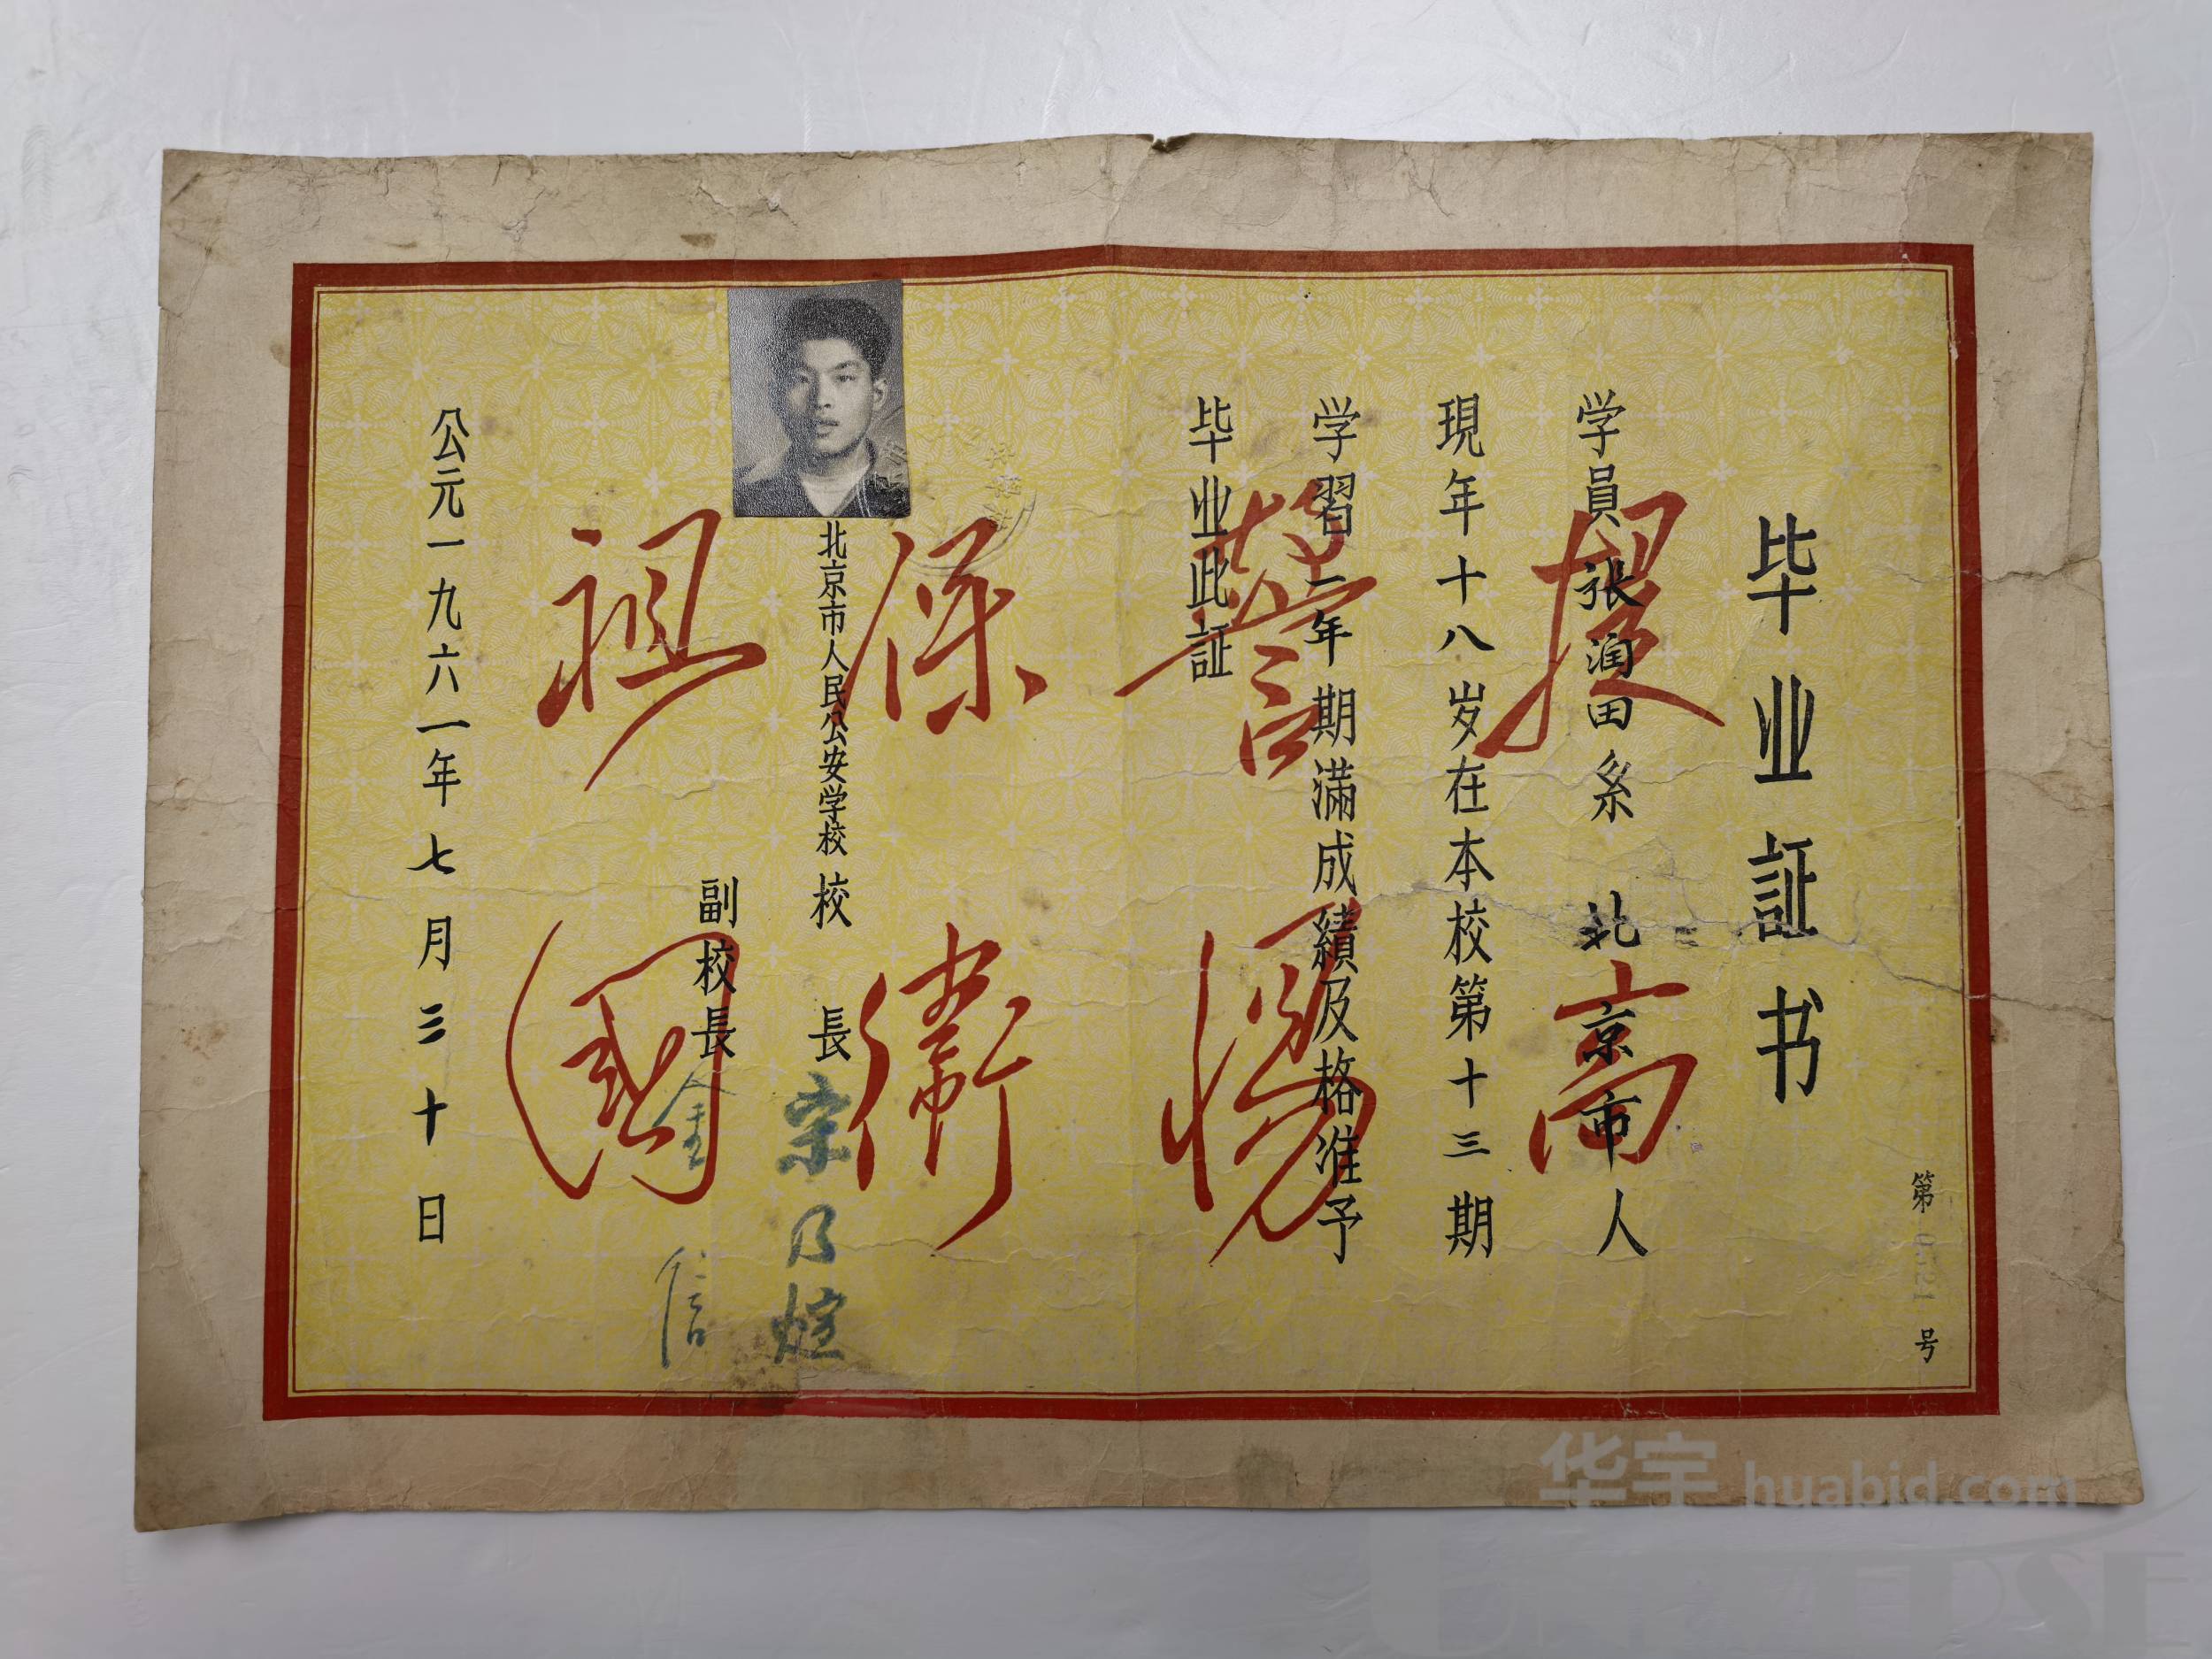 毕业证书
第 0521 号
学員张润田糸 北京市人
現年十八岁在本校第十三期
学習二年期满成績及格准予
毕业此証
提高警惕保衛祖國
北京市人民公安学校校長 宗乃煊
副校長 金信
公元一九六一年七月三十日
华宇 huabid.com